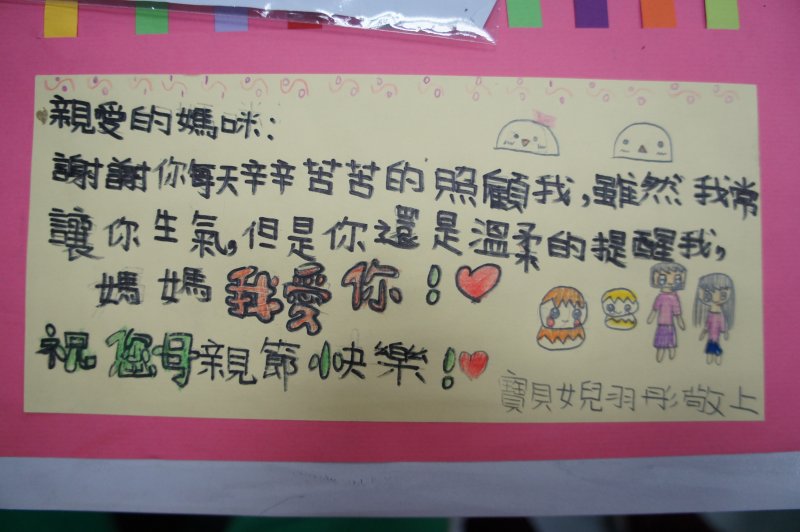 親愛的媽咪:
謝謝你每天辛辛苦苦的照顧我,雖然我常
讓你生氣,但是你還是溫柔的提醒我,
媽媽我愛你!
祝您母親節快樂!
寶貝女兒羽彤敬上